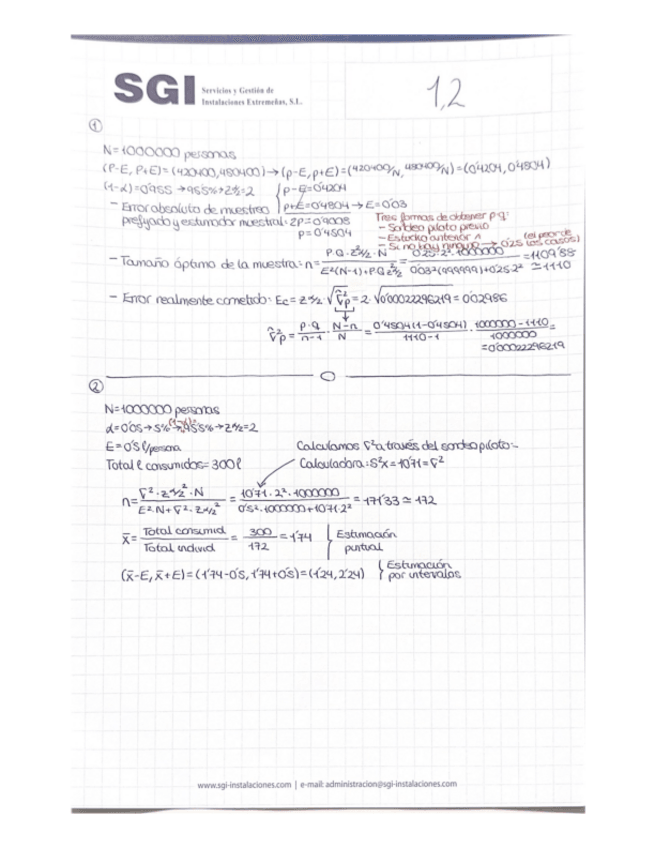 SGI Servicios y Gestión de
Instalaciones Extremeñas, S.L.
1,2
①
N=1000000 personas
(P-E, P+E)=(420400,480400)→(p-E,p+E)=(420400/N, 480400/N)=(0'4204,0'4804)
(1-α)=0'955→95'5%→zα/2=2 { p-E=0'4204
p+E=0'4804→E=0'03
- Error absoluto de muestreo
prefijado y estimador muestral: 2p=0'9008
p=0'4504
Tres formas de obtener p·q:
- Sondeo piloto previo
- Estudio anterior A
- Si no hay ninguno→0'25 (el peor de los casos)
- Tamaño óptimo de la muestra: n= P·Q·Z²α/2·N / E²(N-1)+P·Q·Z²α/2 = 0'25·2²·1000000 / 0'03²(999999)+0'25·2² =1109'88 ≃1110
- Error realmente cometido: Ec=zα/2·√V̂p=2·√0'00022296219=0'02986
V̂p= p·q/n-1 · N-n/N = 0'4504(1-0'4504)/1110-1 · 1000000-1110/1000000 =
=0'00022296219
②
N=1000000 personas
α=0'05→5%→(1-α)=95'5%→zα/2=2
E=0'5 l/persona
Calculamos σ² a través del sondeo piloto:
Total l consumidos=300l
Calculadora: S²x=10'71=σ²
n= σ²·zα/2²·N / E²·N+σ²·zα/2² = 10'71·2²·1000000 / 0'5²·1000000+10'71·2² =171'33≃172
x̄= Total consumid / Total individ = 300/172 =1'74 } Estimación
puntual
(x̄-E, x̄+E)=(1'74-0'5, 1'74+0'5)=(1'24, 2'24) } Estimación
por intervalos
www.sgi-instalaciones.com | e-mail: administracion@sgi-instalaciones.com